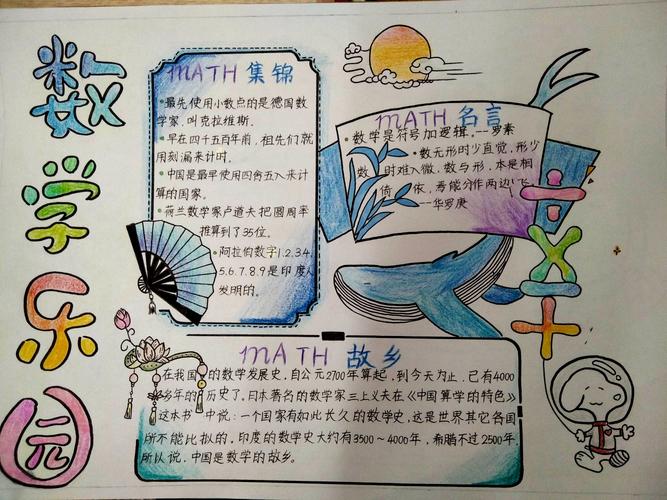 数学乐园
MATH 集锦
•最先使用小数点的是德国数
学家,叫克拉维斯.
•早在四千五百年前,祖先们就
用刻漏来计时.
•中国是最早使用四舍五入来计
算的国家。
•荷兰数学家卢道夫把圆周率
推算到了35位。
•阿拉伯数字1.2.3.4.
5.6.7.8.9是印度人
发明的。
MATH 名言
•数学是符号加逻辑。--罗素
•数无形时少直觉,形少
数时难入微,数与形,本是相
倚依,焉能分作两边飞
--华罗庚
÷×+
MATH 故乡
在我国的数学发展史,自公元2700年算起,到今天为止,已有4000
多年的历史了,日本著名的数学家三上义夫在《中国算学的特色》
这本书中说:一个国家有如此长久的数学史,这是世界其它各国
所不能比拟的,印度的数学史大约有3500~4000年,希腊不过2500年.
所以说,中国是数学的故乡。